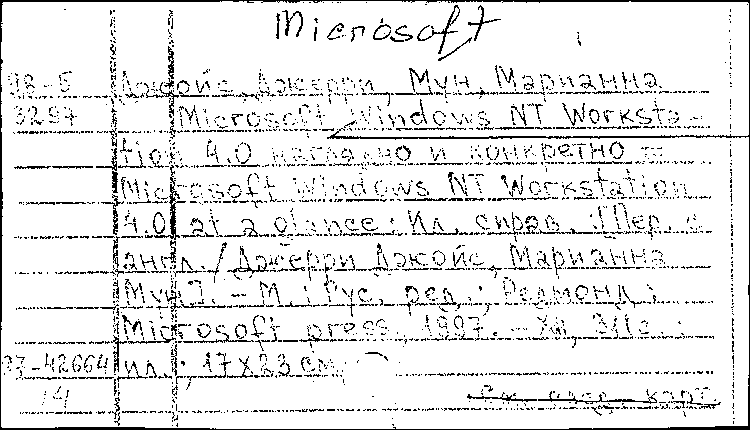 Microsoft
98-5 Джойс, Джерри, Мун, Марианна
3297 Microsoft Windows NT Worksta-
tion 4.0 наглядно и конкретно =
Microsoft Windows NT Workstation
4.0 at a glance : Ил. справ. : [Пер. с
англ. / Джерри Джойс, Марианна
Мун]. - М. : Рус. ред. ; Редмонд :
Microsoft press, 1997. - XII, с. :
97-42664 ил. ; 17 x 23 см.
14 карт.